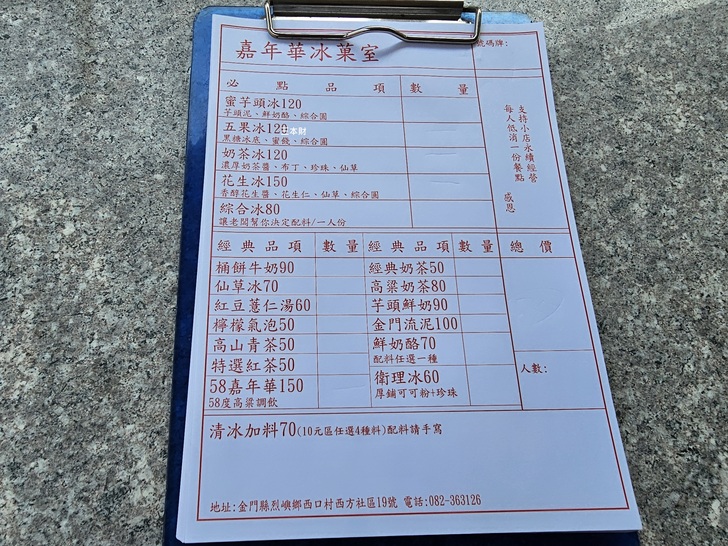 嘉年華冰菓室
號碼牌:
必點品項 數量
蜜芋頭冰120
芋頭泥、鮮奶酪、綜合圓
五果冰120
黑糖冰底、蜜餞、綜合圓
奶茶冰120
濃厚奶茶醬、布丁、珍珠、仙草
花生冰150
香醇花生醬、花生仁、仙草、綜合圓
綜合冰80
讓老闆幫你決定配料/一人份
支持小店永續經營
每人低消一份餐點 感恩
經典品項 數量 經典品項 數量 總價
桶餅牛奶90 經典奶茶50
仙草冰70 高粱奶茶80
紅豆薏仁湯60 芋頭鮮奶90
檸檬氣泡50 金門流泥100
高山青茶50 鮮奶酪70
配料任選一種
特選紅茶50 衛理冰60
厚鋪可可粉+珍珠
58嘉年華150
58度高粱調飲
人數:
清冰加料70(10元區任選4種料)配料請手寫
地址:金門縣烈嶼鄉西口村西方社區19號 電話:082-363126